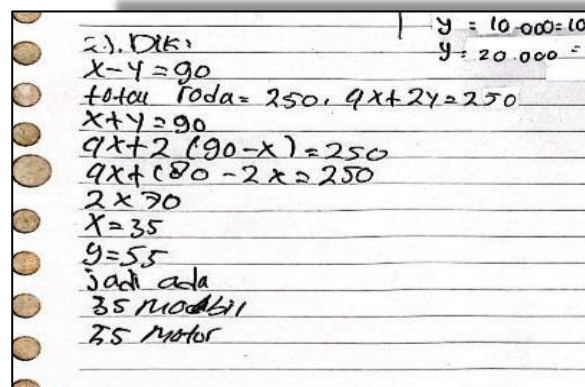 y = 10.000=10
y = 20.000 =
2.). Dik:
x-y=90
total roda= 250, 4x+2y=250
x+y=90
4x+2 (90-x)=250
4x+180-2x=250
2x70
x=35
y=55
jadi ada
35 mobil
55 motor